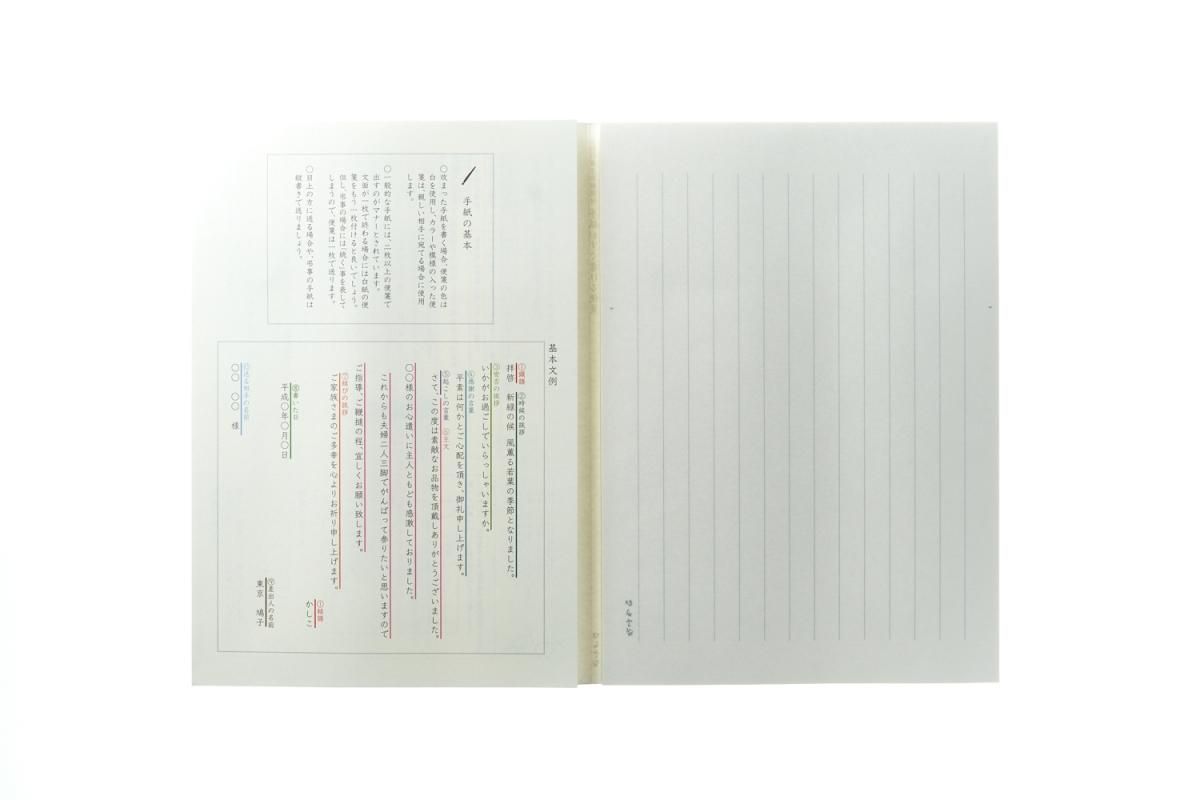 手紙の基本
〇改まった手紙を書く場合、便箋の色は
白を使用し、カラーや模様の入った便
箋は、親しい相手に宛てる場合に使用
します。
〇一般的な手紙には、二枚以上の便箋で
出すのがマナーとされています。
文面が一枚で終わる場合には白紙の便
箋をもう一枚付けると良いでしょう。
但し、弔事の場合には「続く」事を表して
しまうので、便箋は一枚で送ります。
〇目上の方に送る場合や、弔事の手紙は
縦書きで送りましょう。
基本文例
①頭語 ②時候の挨拶
拝啓 新緑の候 風薫る若葉の季節となりました。
③安否の挨拶
いかがお過ごしていらっしゃいますか。
④感謝の言葉
平素は何かとご心配を頂き、御礼申し上げます。
⑤起こしの言葉 ⑥主文
さて、この度は素敵なお品物を頂戴しありがとうございました。
〇〇様のお心遣いに主人ともども感激しておりました。
これからも夫婦二人三脚でがんばって参りたいと思いますので
ご指導、ご鞭撻の程、宜しくお願い致します。
⑦結びの挨拶
ご家族さまのご多幸を心よりお祈り申し上げます。
①結語
かしこ
⑧書いた日
平成〇年〇月〇日
⑨差出人の名前
東京 鳩子
⑩送る相手の名前
〇〇 〇〇 様